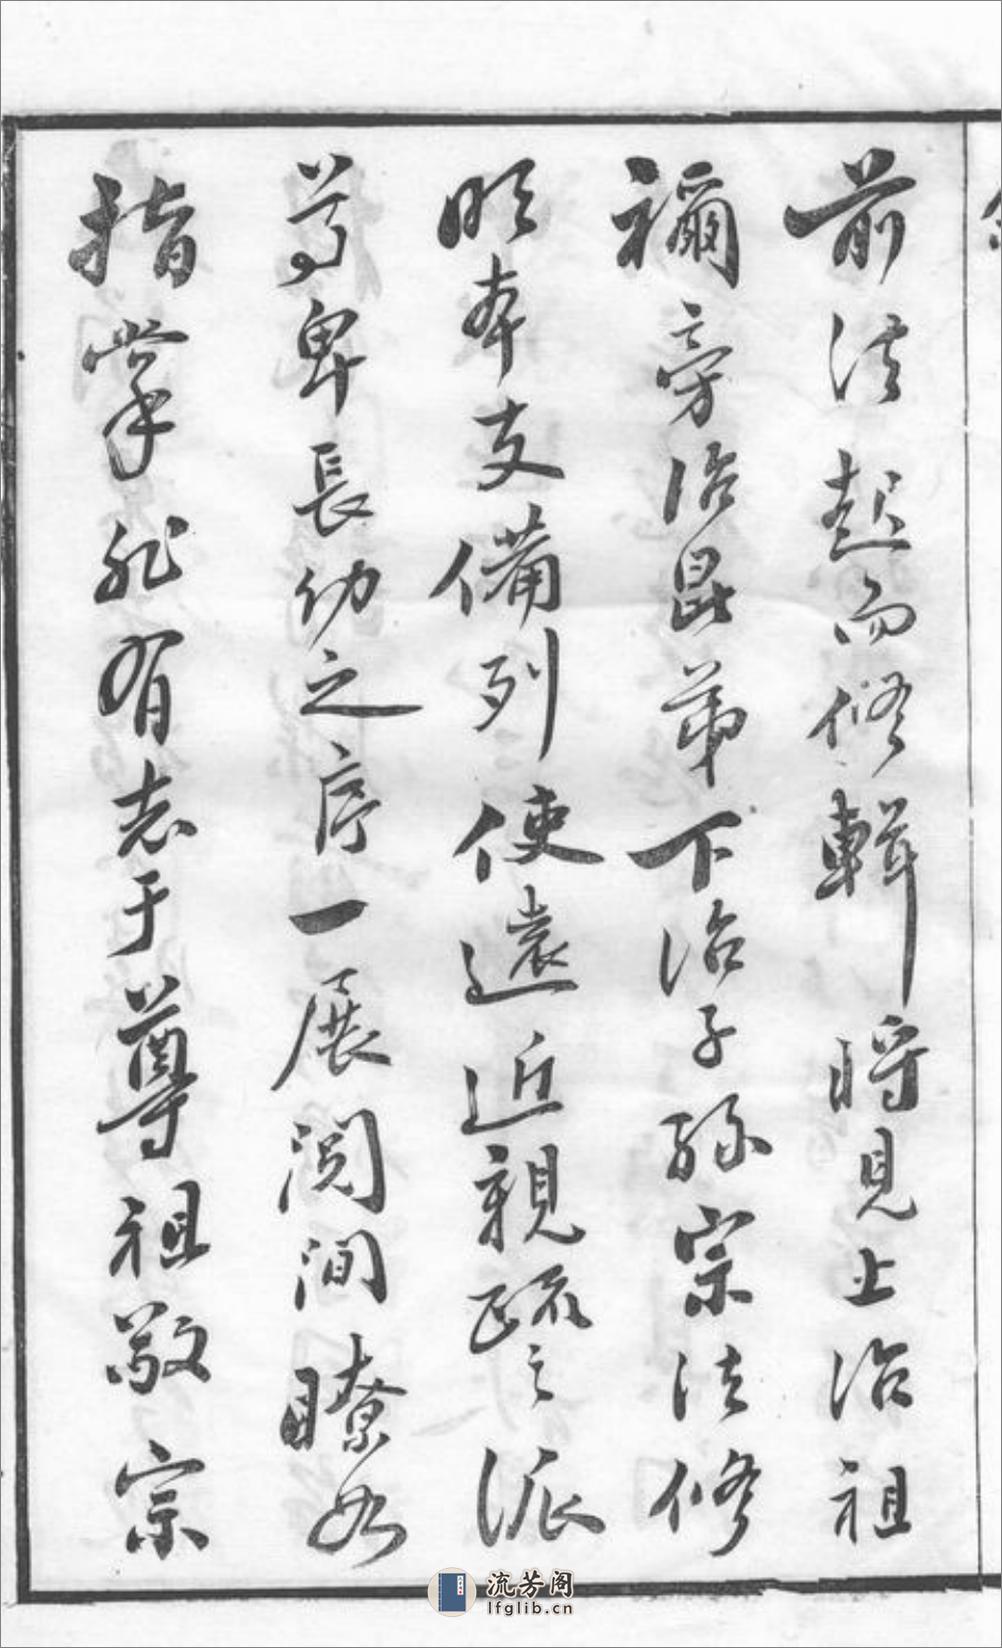 前法起而修輯將見上治祖
禰旁治昆弟下治子孫宗法修
明本支備列使遠近親疏之派
尊卑長幼之序一展閱間瞭如
指掌非有志于尊祖敬宗
流芳阁
lfglib.cn